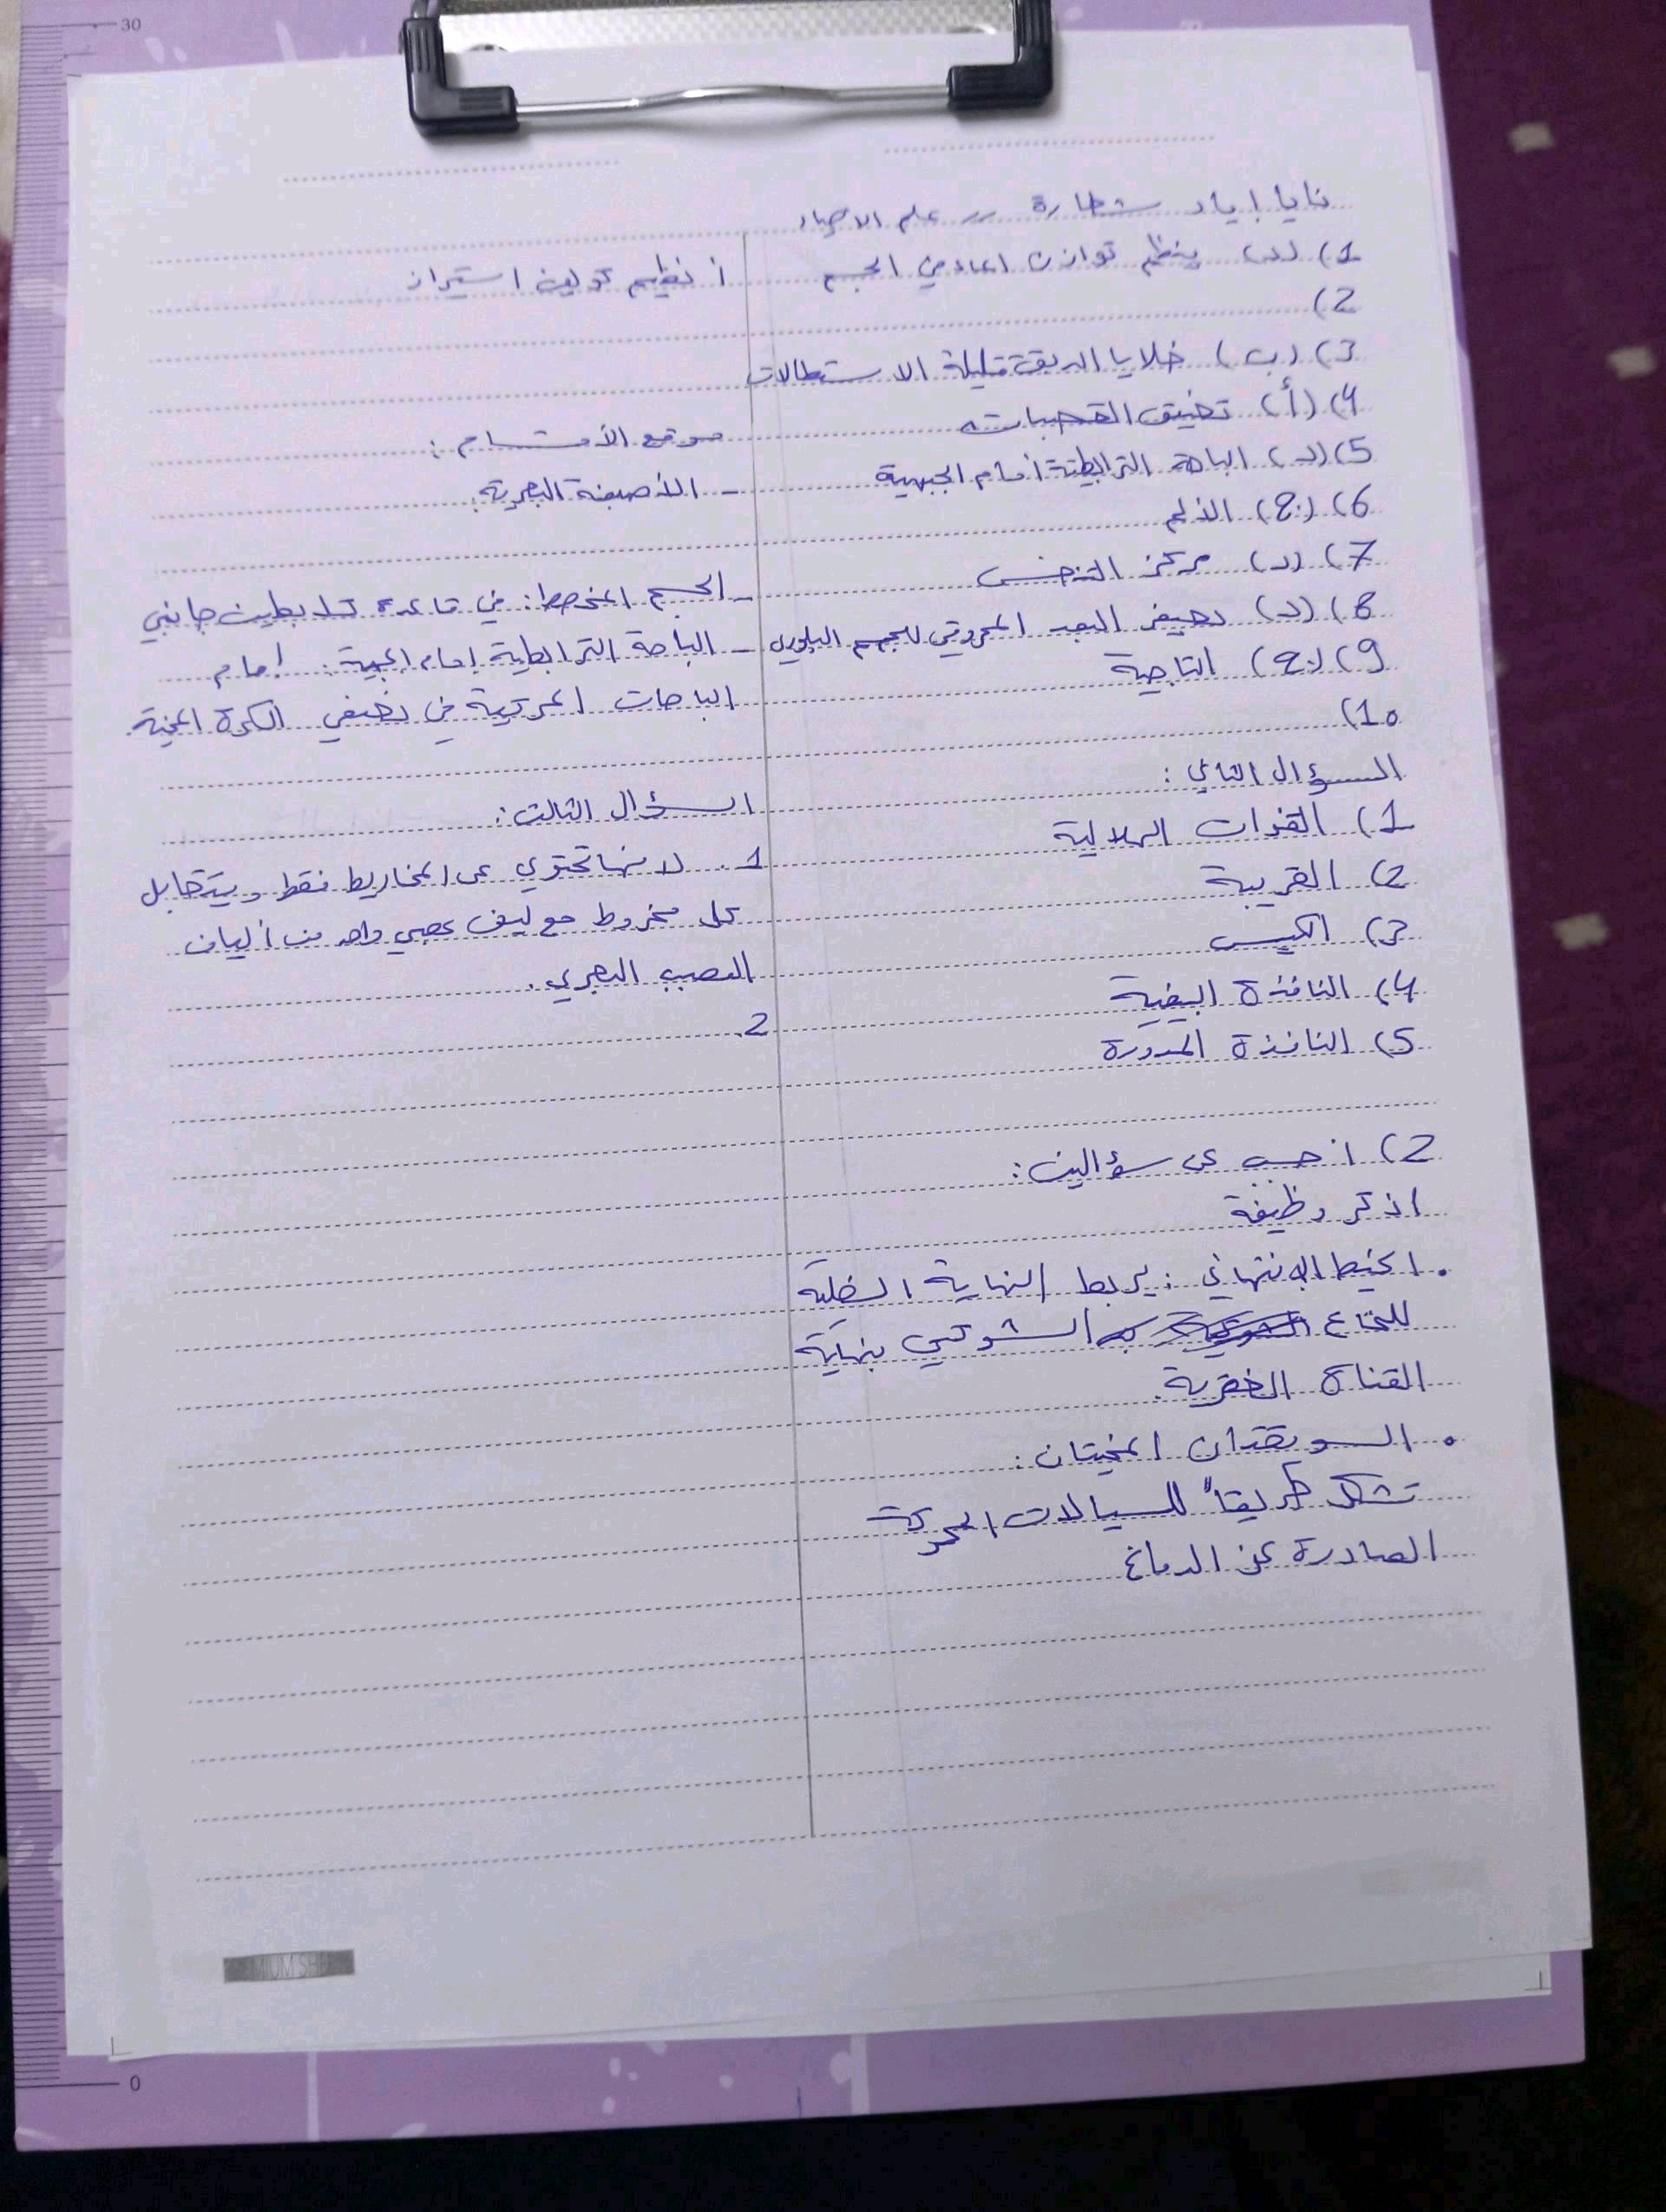 30
نايا اياد شحارة علم الاحياء
1) (د) ينظم توازن الماء في الجسم
2)
3) (ب) خلايا الدبق قليلة الاستطالات
4) (أ) تضيق القصبات
5) (د) الباحة الترابطية أمام الجبهية
6) (ج) الذلم
7) (د) مركز التنفس
8) (د) نصف البعد المحرقي للجسم البلوري
9) (ج) التاجية
10)
السؤال الثاني:
1) القنوات الهلالية
2) القريبة
3) الكييس
4) النافذة البيضية
5) النافذة المدورة
2) أجب عن سؤالين:
اذكر وظيفة
. الخيط الانتهائي: يربط النهاية السفلية
للنخاع الشوكي بنهاية
القناة الفقرية.
. السويقتان المخيتان:
تشكل طريقاً للسيالات المحركة
الصادرة عن الدماغ
أ تنظيم
موقع الأقسام:
- الأصبغة البصرية:
- الجسم المخطط: في قاعدة كل بطين جانبي
- الباحة الترابطية أمام الجبهية: أمام
الباحات الحركية في نصفي الكرة المخية.
السؤال الثالث:
1. لانها تحتوي على المخاريط فقط ويتقابل
كل مخروط مع ليف عصبي واحد من ألياف
العصب البصري.
2.
MIUM SHE
0